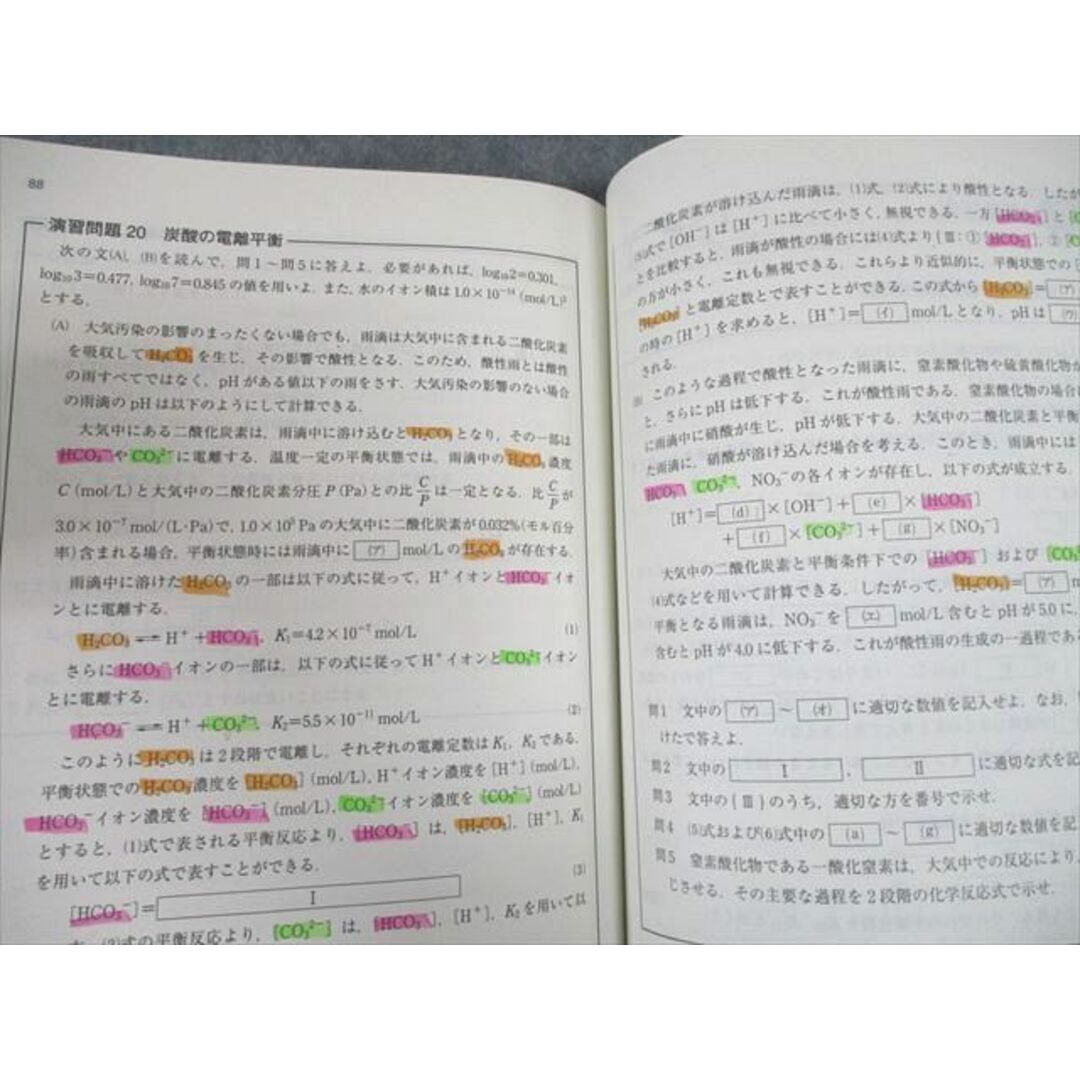 88
演習問題20 炭酸の電離平衡
次の文(A), (B)を読んで, 問1～問5に答えよ. 必要があれば, log₁₀2=0.301,
log₁₀3=0.477, log₁₀7=0.845 の値を用いよ. また, 水のイオン積は 1.0×10⁻¹⁴ (mol/L)²
とする.
(A) 大気汚染の影響のまったくない場合でも, 雨滴は大気中に含まれる二酸化炭素
を吸収して H₂CO₃ を生じ, その影響で酸性となる. このため, 酸性雨とは酸性
の雨すべてではなく, pH がある値以下の雨をさす. 大気汚染の影響のない場合
の雨滴の pH は以下のようにして計算できる.
大気中にある二酸化炭素は, 雨滴中に溶け込むと H₂CO₃ となり, その一部は
HCO₃⁻ や CO₃²⁻ に電離する. 温度一定の平衡状態では, 雨滴中の H₂CO₃ 濃度
C (mol/L) と大気中の二酸化炭素分圧 P (Pa) との比 C/P は一定となる. 比 C/P が
3.0×10⁻⁷ mol/(L·Pa) で, 1.0×10⁵ Pa の大気中に二酸化炭素が 0.032% (モル百分
率) 含まれる場合, 平衡状態時には雨滴中に (ア) mol/L の H₂CO₃ が存在する.
雨滴中に溶けた H₂CO₃ の一部は以下の式に従って, H⁺ イオンと HCO₃⁻ イオ
ンとに電離する.
H₂CO₃ ⇌ H⁺ + HCO₃⁻, K₁=4.2×10⁻⁷ mol/L (1)
さらに HCO₃⁻ イオンの一部は, 以下の式に従って H⁺ イオンと CO₃²⁻ イオン
とに電離する.
HCO₃⁻ ⇌ H⁺ + CO₃²⁻, K₂=5.5×10⁻¹¹ mol/L (2)
このように H₂CO₃ は2段階で電離し, それぞれの電離定数は K₁, K₂ である.
平衡状態での H₂CO₃ 濃度を [H₂CO₃] (mol/L), H⁺ イオン濃度を [H⁺] (mol/L),
HCO₃⁻ イオン濃度を [HCO₃⁻] (mol/L), CO₃²⁻ イオン濃度を [CO₃²⁻] (mol/L)
とすると, (1)式で表される平衡反応より, [HCO₃⁻] は, [H₂CO₃], [H⁺], K₁
を用いて以下の式で表すことができる.
[HCO₃⁻]= I (3)
(2)式の平衡反応より, [CO₃²⁻] は, [HCO₃⁻], [H⁺], K₂ を用いて以
二酸化炭素が溶け込んだ雨滴は, (1)式, (2)式により酸性となる. したが
(5)式で [OH⁻] は [H⁺] に比べて小さく, 無視できる. 一方 [HCO₃⁻] と
とを比較すると, 雨滴が酸性の場合には(4)式より {Ⅲ: ① [HCO₃⁻], ②
の方が小さく, これも無視できる. これらより近似的に, 平衡状態での
[H₂CO₃] と電離定数とで表すことができる. この式から [H₂CO₃]= (ア)
の時の [H⁺] を求めると, [H⁺]= (イ) mol/L となり, pH は (ウ)
される.
(B) このような過程で酸性となった雨滴に, 窒素酸化物や硫黄酸化物が
と, さらに pH は低下する. これが酸性雨である. 窒素酸化物の場合
に雨滴中に硝酸が生じ, pH が低下する. 大気中の二酸化炭素と平衡
た雨滴に, 硝酸が溶け込んだ場合を考える. このとき, 雨滴中には
HCO₃⁻, CO₃²⁻, NO₃⁻ の各イオンが存在し, 以下の式が成立する.
[H⁺]= (d) ×[OH⁻]+ (e) ×[HCO₃⁻]
+ (f) ×[CO₃²⁻]+ (g) ×[NO₃⁻]
大気中の二酸化炭素と平衡条件下での [HCO₃⁻] および
(4)式などを用いて計算できる. したがって, [H₂CO₃]= (ア)
平衡となる雨滴は, NO₃⁻ を (エ) mol/L 含むと pH が 5.0 に,
含むと pH が 4.0 に低下する. これが酸性雨の生成の一過程であ
問1 文中の (ア) ～ (オ) に適切な数値を記入せよ. なお,
けたで答えよ.
問2 文中の I , Ⅱ に適切な式を記
問3 文中の {Ⅲ} のうち, 適切な方を番号で示せ.
問4 (5)式および(6)式中の (a) ～ (g) に適切な数値を記
問5 窒素酸化物である一酸化窒素は, 大気中での反応により
じさせる. その主要な過程を2段階の化学反応式で示せ.